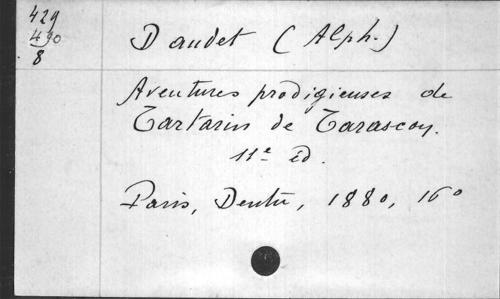 429
490
8
Daudet (Alph.)
Aventures prodigieuses de
Tartarin de Tarascon.
11e Ed.
Paris, Dentu, 1880, 16°